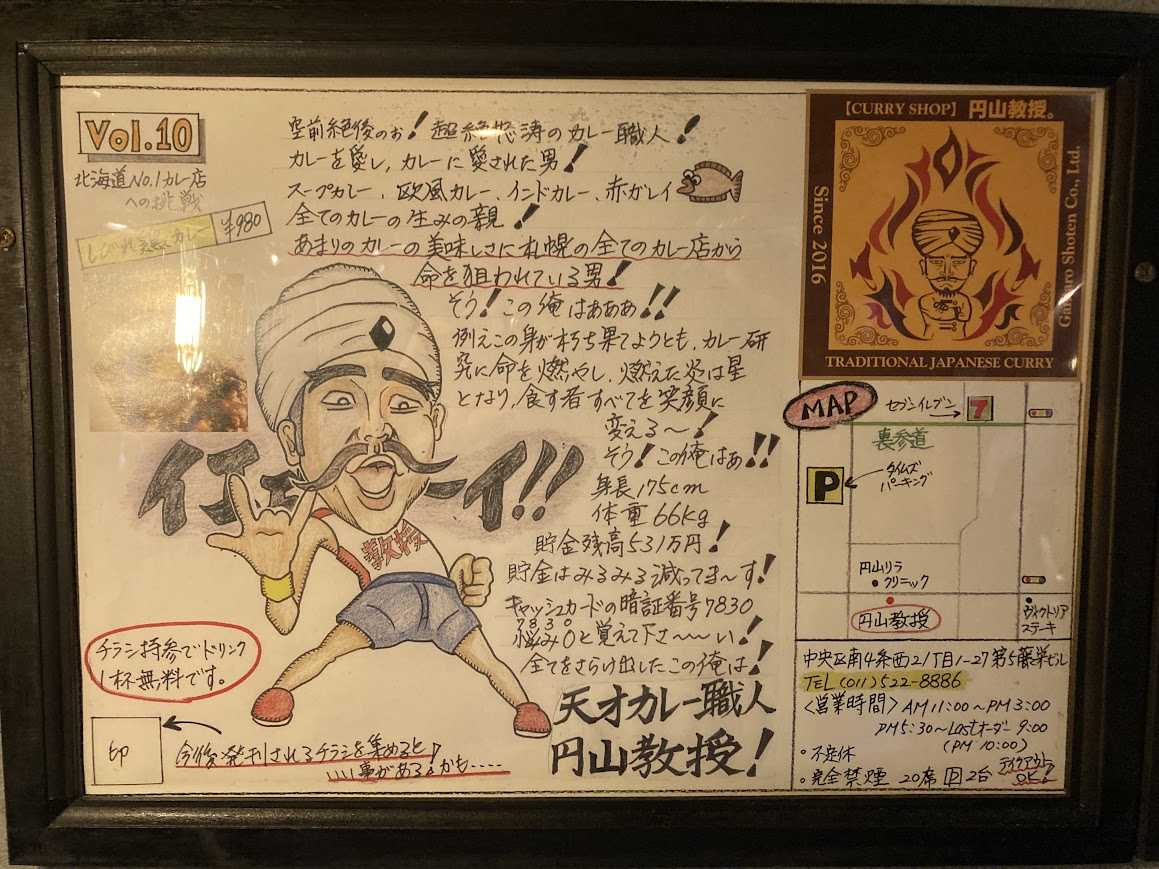 Vol.10
北海道No.1カレー店
への挑戦
カレー
¥980
空前絶後のぉ!超絶怒涛のカレー職人!
カレーを愛し、カレーに愛された男!
スープカレー、欧風カレー、インドカレー、赤ガレイ
全てのカレーの生みの親!
あまりのカレーの美味しさに札幌の全てのカレー店から
命を狙われている男!
そう!この俺はあああ!!
例えこの身が朽ち果てようとも、カレー研
究に命を燃やし、燃えた炎は星
となり、食す者すべてを笑顔に
変える〜!
そう!この俺はぁ!!
身長175cm
体重66kg
貯金残高531万円!
貯金はみるみる減ってま〜す!
キャッシュカードの暗証番号7830
7830
悩み0と覚えて下さ〜〜い!
全てをさらけ出したこの俺は!
天才カレー職人
円山教授!
イェーイ!!
教授
チラシ持参でドリンク
1杯無料です。
印
今後発刊されるチラシを集めると
いい事がある!かも・・・・・
【CURRY SHOP】円山教授。
Since 2016
Garaku Shoten Co., Ltd.
TRADITIONAL JAPANESE CURRY
MAP
セブンイレブン
7
裏参道
P
タイムズ
パーキング
円山リラ
クリニック
円山教授
ヴィクトリア
ステーキ
中央区南4条西21丁目1-27第5藤栄ビル
TEL(011)522-8886
〈営業時間〉AM11:00〜PM3:00
PM5:30〜Lastオーダー9:00
(PM10:00)
・不定休
・完全禁煙 20席 P2台 テイクアウト
OK!